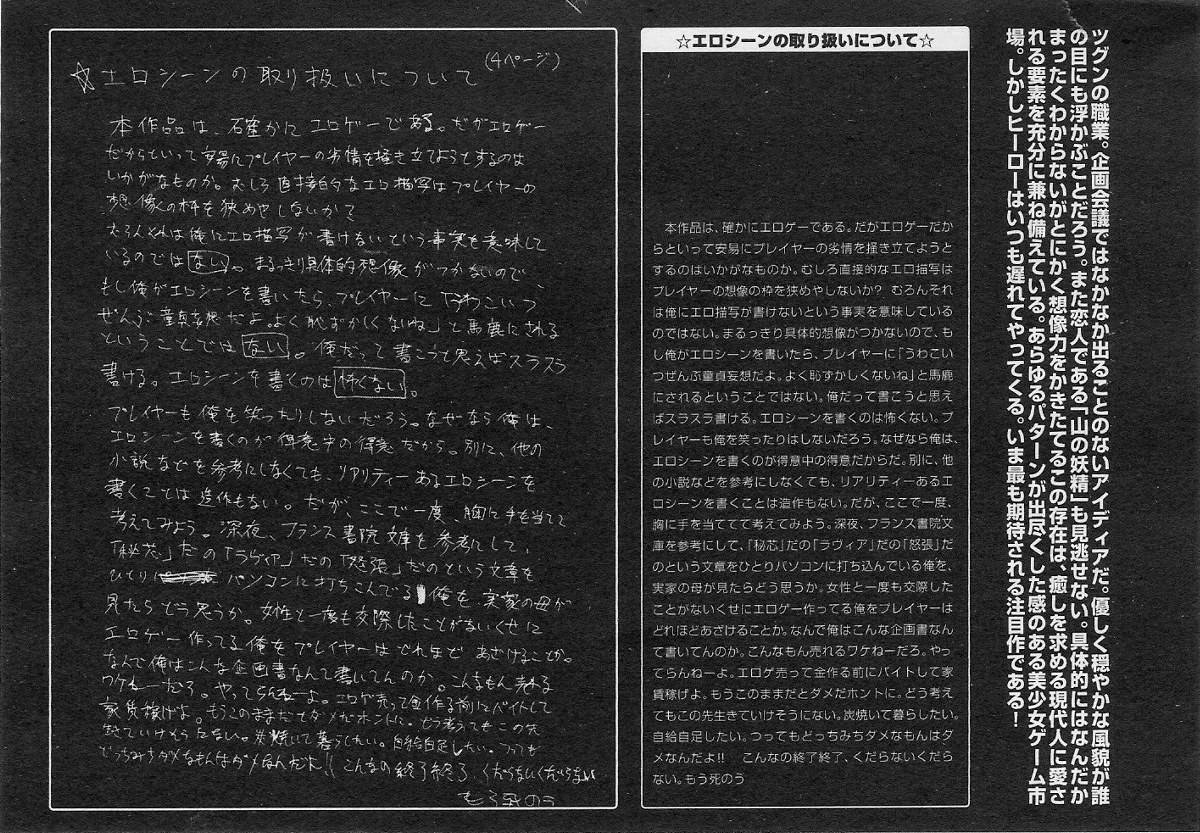 ツグンの職業。企画会議ではなかなか出ることのないアイディアだ。優しく穏やかな風貌が誰
の目にも浮かぶことだろう。また恋人である「山の妖精」も見逃せない。具体的にはなんだか
まったくわからないがとにかく想像力をかきたてるこの存在は、癒しを求める現代人に愛さ
れる要素を充分に兼ね備えている。あらゆるパターンが出尽くした感のある美少女ゲーム市
場。しかしヒーローはいつも遅れてやってくる。いま最も期待される注目作である!
☆エロシーンの取り扱いについて☆
本作品は、確かにエロゲーである。だがエロゲーだか
らといって安易にプレイヤーの劣情を掻き立てようと
するのはいかがなものか。むしろ直接的なエロ描写は
プレイヤーの想像の枠を狭めやしないか? むろんそれ
は俺にエロ描写が書けないという事実を意味している
のではない。まるっきり具体的想像がつかないので、も
し俺がエロシーンを書いたら、プレイヤーに「うわこい
つぜんぶ童貞妄想だよ。よく恥ずかしくないね」と馬鹿
にされるということではない。俺だって書こうと思え
ばスラスラ書ける。エロシーンを書くのは怖くない。プ
レイヤーも俺を笑ったりはしないだろう。なぜなら俺は、
エロシーンを書くのが得意中の得意だからだ。別に、他
の小説などを参考にしなくても、リアリティーあるエ
ロシーンを書くことは造作もない。だが、ここで一度、
胸に手を当ててて考えてみよう。深夜、フランス書院文
庫を参考にして、「秘芯」だの「ラヴィア」だの「怒張」だ
のという文章をひとりパソコンに打ち込んでいる俺を、
実家の母が見たらどう思うか。女性と一度も交際した
ことがないくせにエロゲー作ってる俺をプレイヤーは
どれほどあざけることか。なんで俺はこんな企画書なん
て書いてんのか。こんなもん売れるワケねーだろ。やっ
てらんねーよ。エロゲ売って金作る前にバイトして家
賃稼げよ。もうこのままだとダメだホントに。どう考え
てもこの先生きていけそうにない。炭焼いて暮らしたい。
自給自足したい。つってもどっちみちダメなもんはダ
メなんだよ!! こんなの終了終了、くだらないくだら
ない。もう死のう
(4ページ)
☆エロシーンの取り扱いについて
本作品は、確かにエロゲーである。だがエロゲー
だからといって安易にプレイヤーの劣情を掻き立てようとするのは
いかがなものか。むしろ直接的なエロ描写はプレイヤーの
想像の枠を狭めやしないか?
むろんそれは俺にエロ描写が書けないという事実を意味して
いるのではない。まるっきり具体的想像がつかないので、
もし俺がエロシーンを書いたら、プレイヤーに「うわこいつ
ぜんぶ童貞妄想だよ。よく恥ずかしくないね」と馬鹿にされる
ということではない。俺だって書こうと思えばスラスラ
書ける。エロシーンを書くのは怖くない。
プレイヤーも俺を笑ったりしないだろう。なぜなら俺は、
エロシーンを書くのが得意中の得意だから。別に、他の
小説などを参考にしなくても、リアリティーあるエロシーンを
書くことは造作もない。だが、ここで一度、胸に手を当てて
考えてみよう。深夜、フランス書院文庫を参考にして、
「秘芯」だの「ラヴィア」だの「怒張」だのという文章を
ひとり パソコンに打ちこんでる俺を、実家の母が
見たらどう思うか。女性と一度も交際したことがないくせに
エロゲー作ってる俺をプレイヤーはどれほどあざけることか。
なんで俺はこんな企画書なんて書いてんのか。こんなもん売れる
ワケねーだろ。やってらんねーよ。エロゲ売って金作る前にバイトして
家賃稼げよ。もうこのままだとダメだホントに。どう考えてもこの先
生きていけそうにない。炭焼いて暮らしたい。自給自足したい。つっても
どっちみちダメなもんはダメなんだよ!! こんなの終了終了、くだらないくだらない
もう死のう